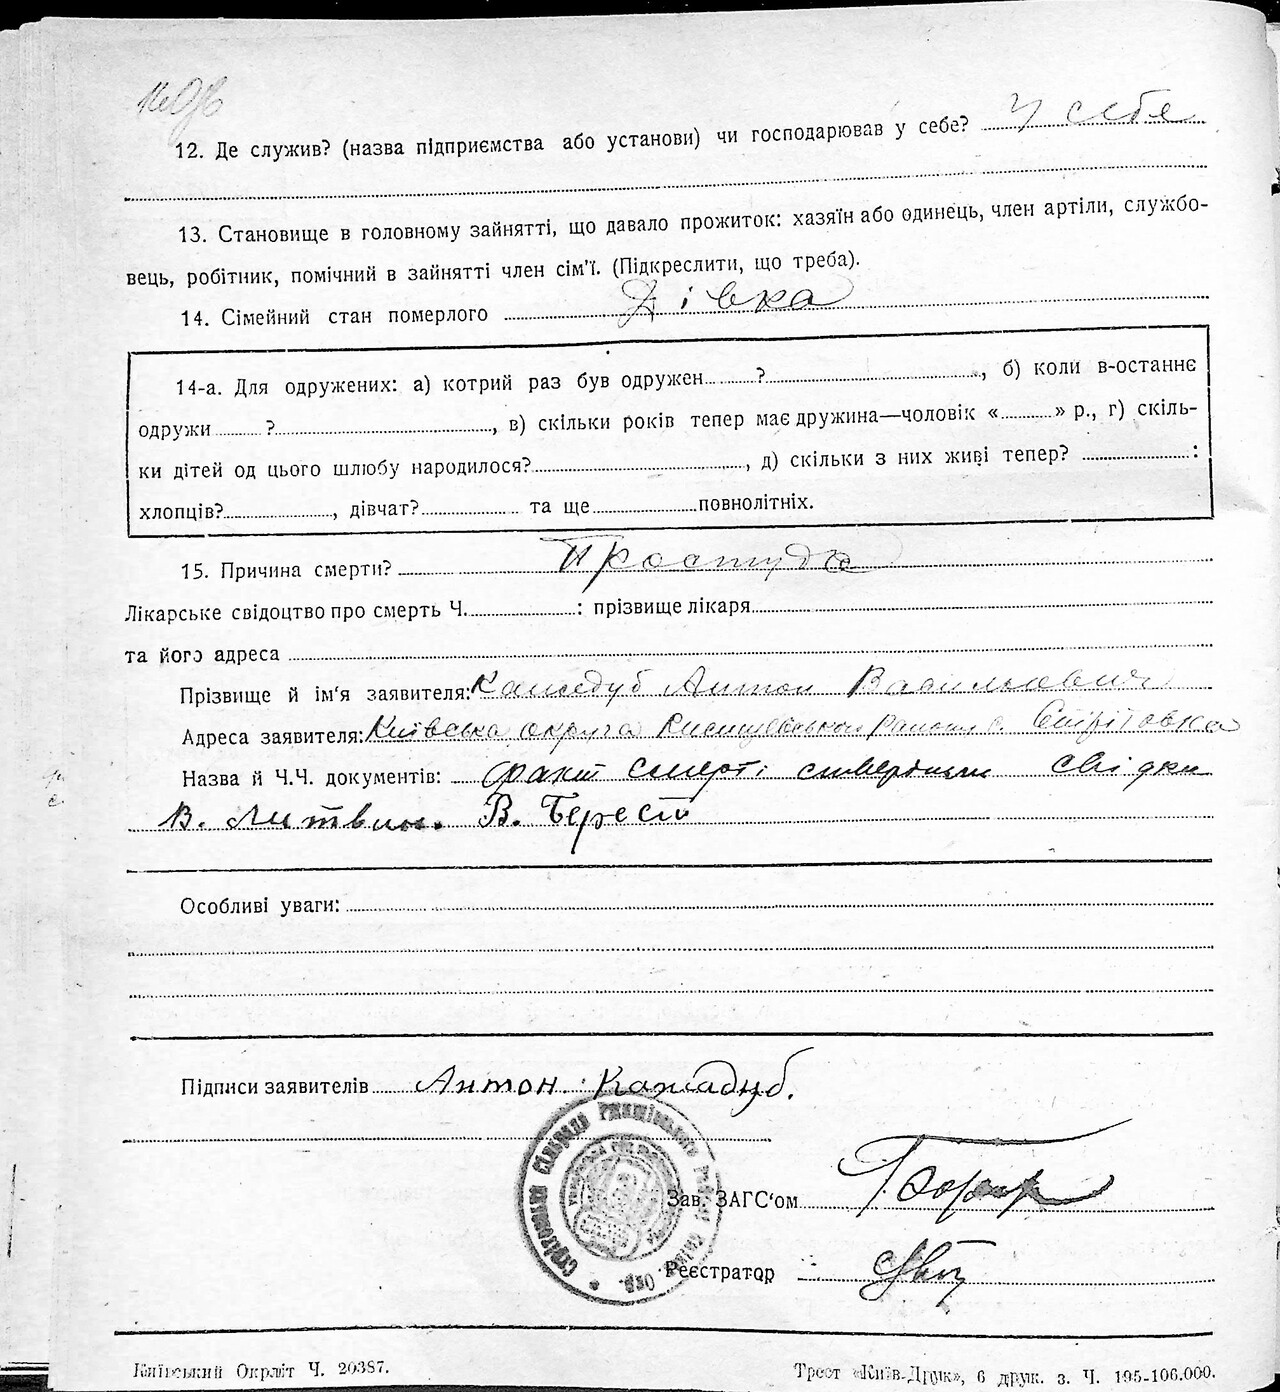 12. Де служив? (назва підприємства або установи) чи господарював у себе? У себе
13. Становище в головному зайнятті, що давало прожиток: хазяїн або одинець, член артіли, службо-
вець, робітник, помічний в зайнятті член сім'ї. (Підкреслити, що треба).
14. Сімейний стан померлого Дівка
14-а. Для одружених: а) котрий раз був одружен ?, б) коли в-останнє
одружи ?, в) скільки років тепер має дружина—чоловік « » р., г) скіль-
ки дітей од цього шлюбу народилося?, д) скільки з них живі тепер? :
хлопців?, дівчат? та ще повнолітніх.
15. Причина смерти? Простуда
Лікарське свідоцтво про смерть Ч. : прізвище лікаря
та його адреса
Прізвище й ім'я заявителя: Кажедуб Антон Васильович
Адреса заявителя: Київська округа района с.
Назва й Ч.Ч. документів: факт смерті свідки
В. Литвин. В. Берест
Особливі уваги:
Підписи заявителів Антон Кажадуб.
Ржищівського
Окр.
Зав. ЗАГС'ом
Реєстратор
Київський Окрліт Ч. 20387.
Трест «Київ-Друк», 6 друк. з. Ч. 195-106.000.